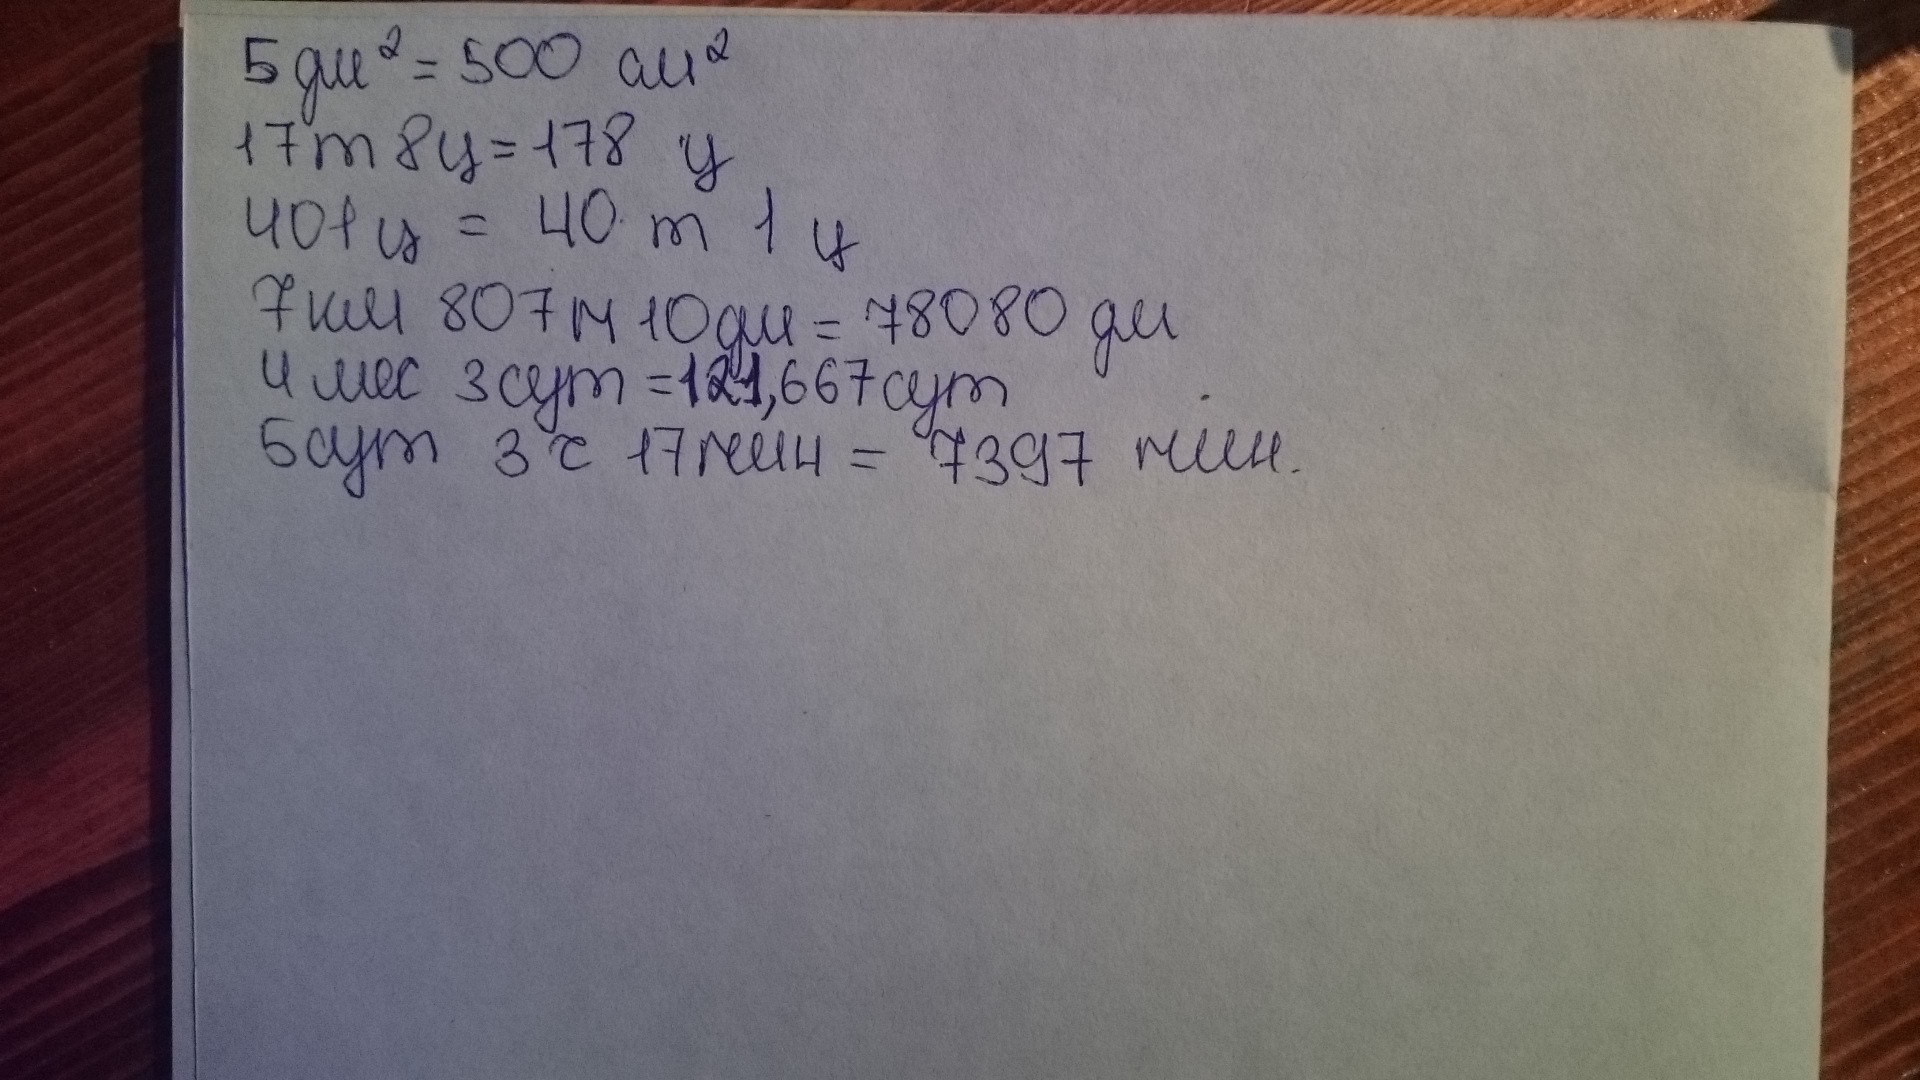 5 дм² = 500 см²
17т 8ц = 178 ц
401ц = 40 т 1 ц
7км 807м 10дм = 78080 дм
4 мес 3 сут = 121,667сут
5сут 3 ч 17мин = 7397 мин.